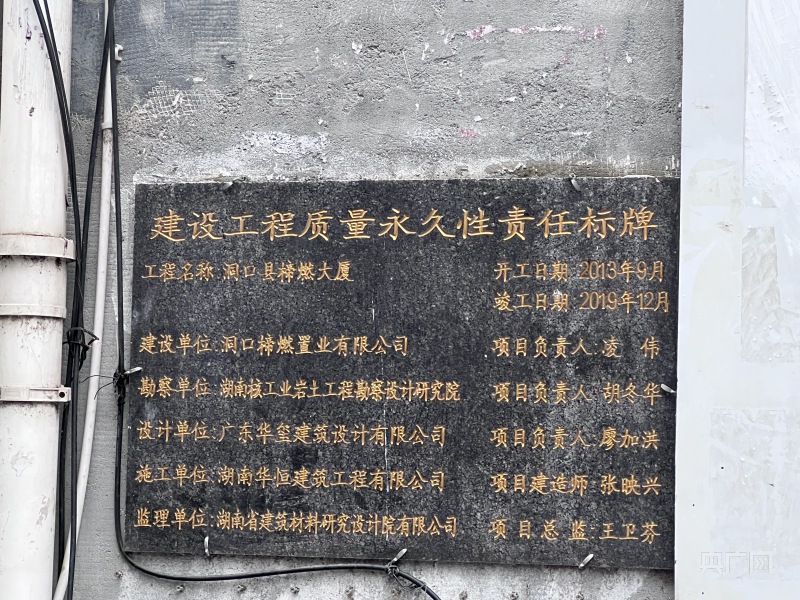 建设工程质量永久性责任标牌
工程名称:洞口县楴燃大厦 开工日期:2013年9月
竣工日期:2019年12月
建设单位:洞口楴燃置业有限公司 项目负责人:凌 伟
勘察单位:湖南核工业岩土工程勘察设计研究院 项目负责人:胡冬华
设计单位:广东华玺建筑设计有限公司 项目负责人:廖加洪
施工单位:湖南华恒建筑工程有限公司 项目建造师:张映兴
监理单位:湖南省建筑材料研究设计院有限公司 项目总监:王卫芬
央广网